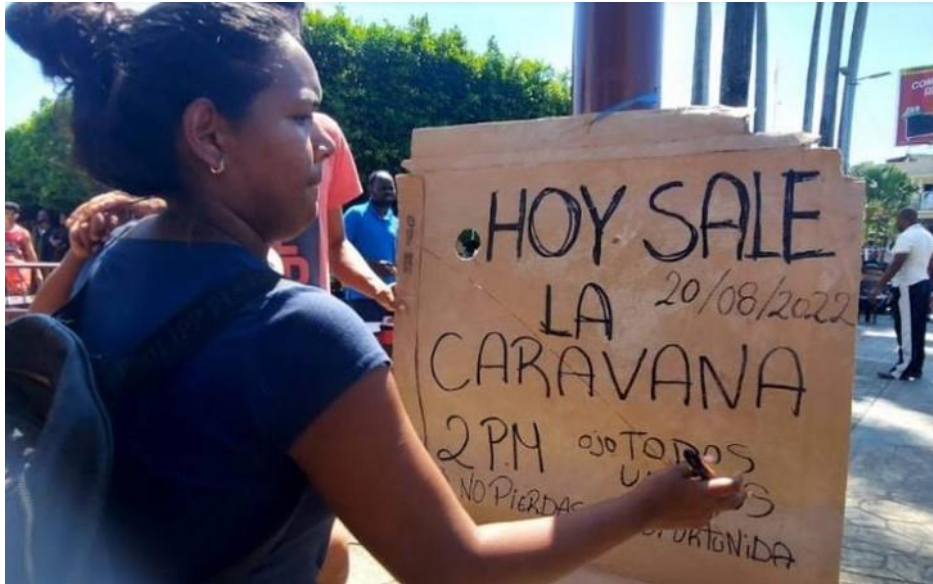 HOY SALE
20/08/2022
LA
CARAVANA
2 P.M ojo TODOS
NO PIERDAS
OPORTUNIDA